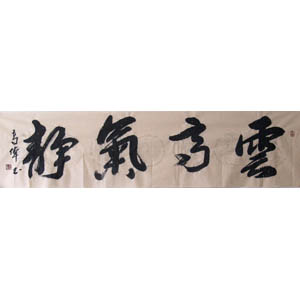 雲高氣靜